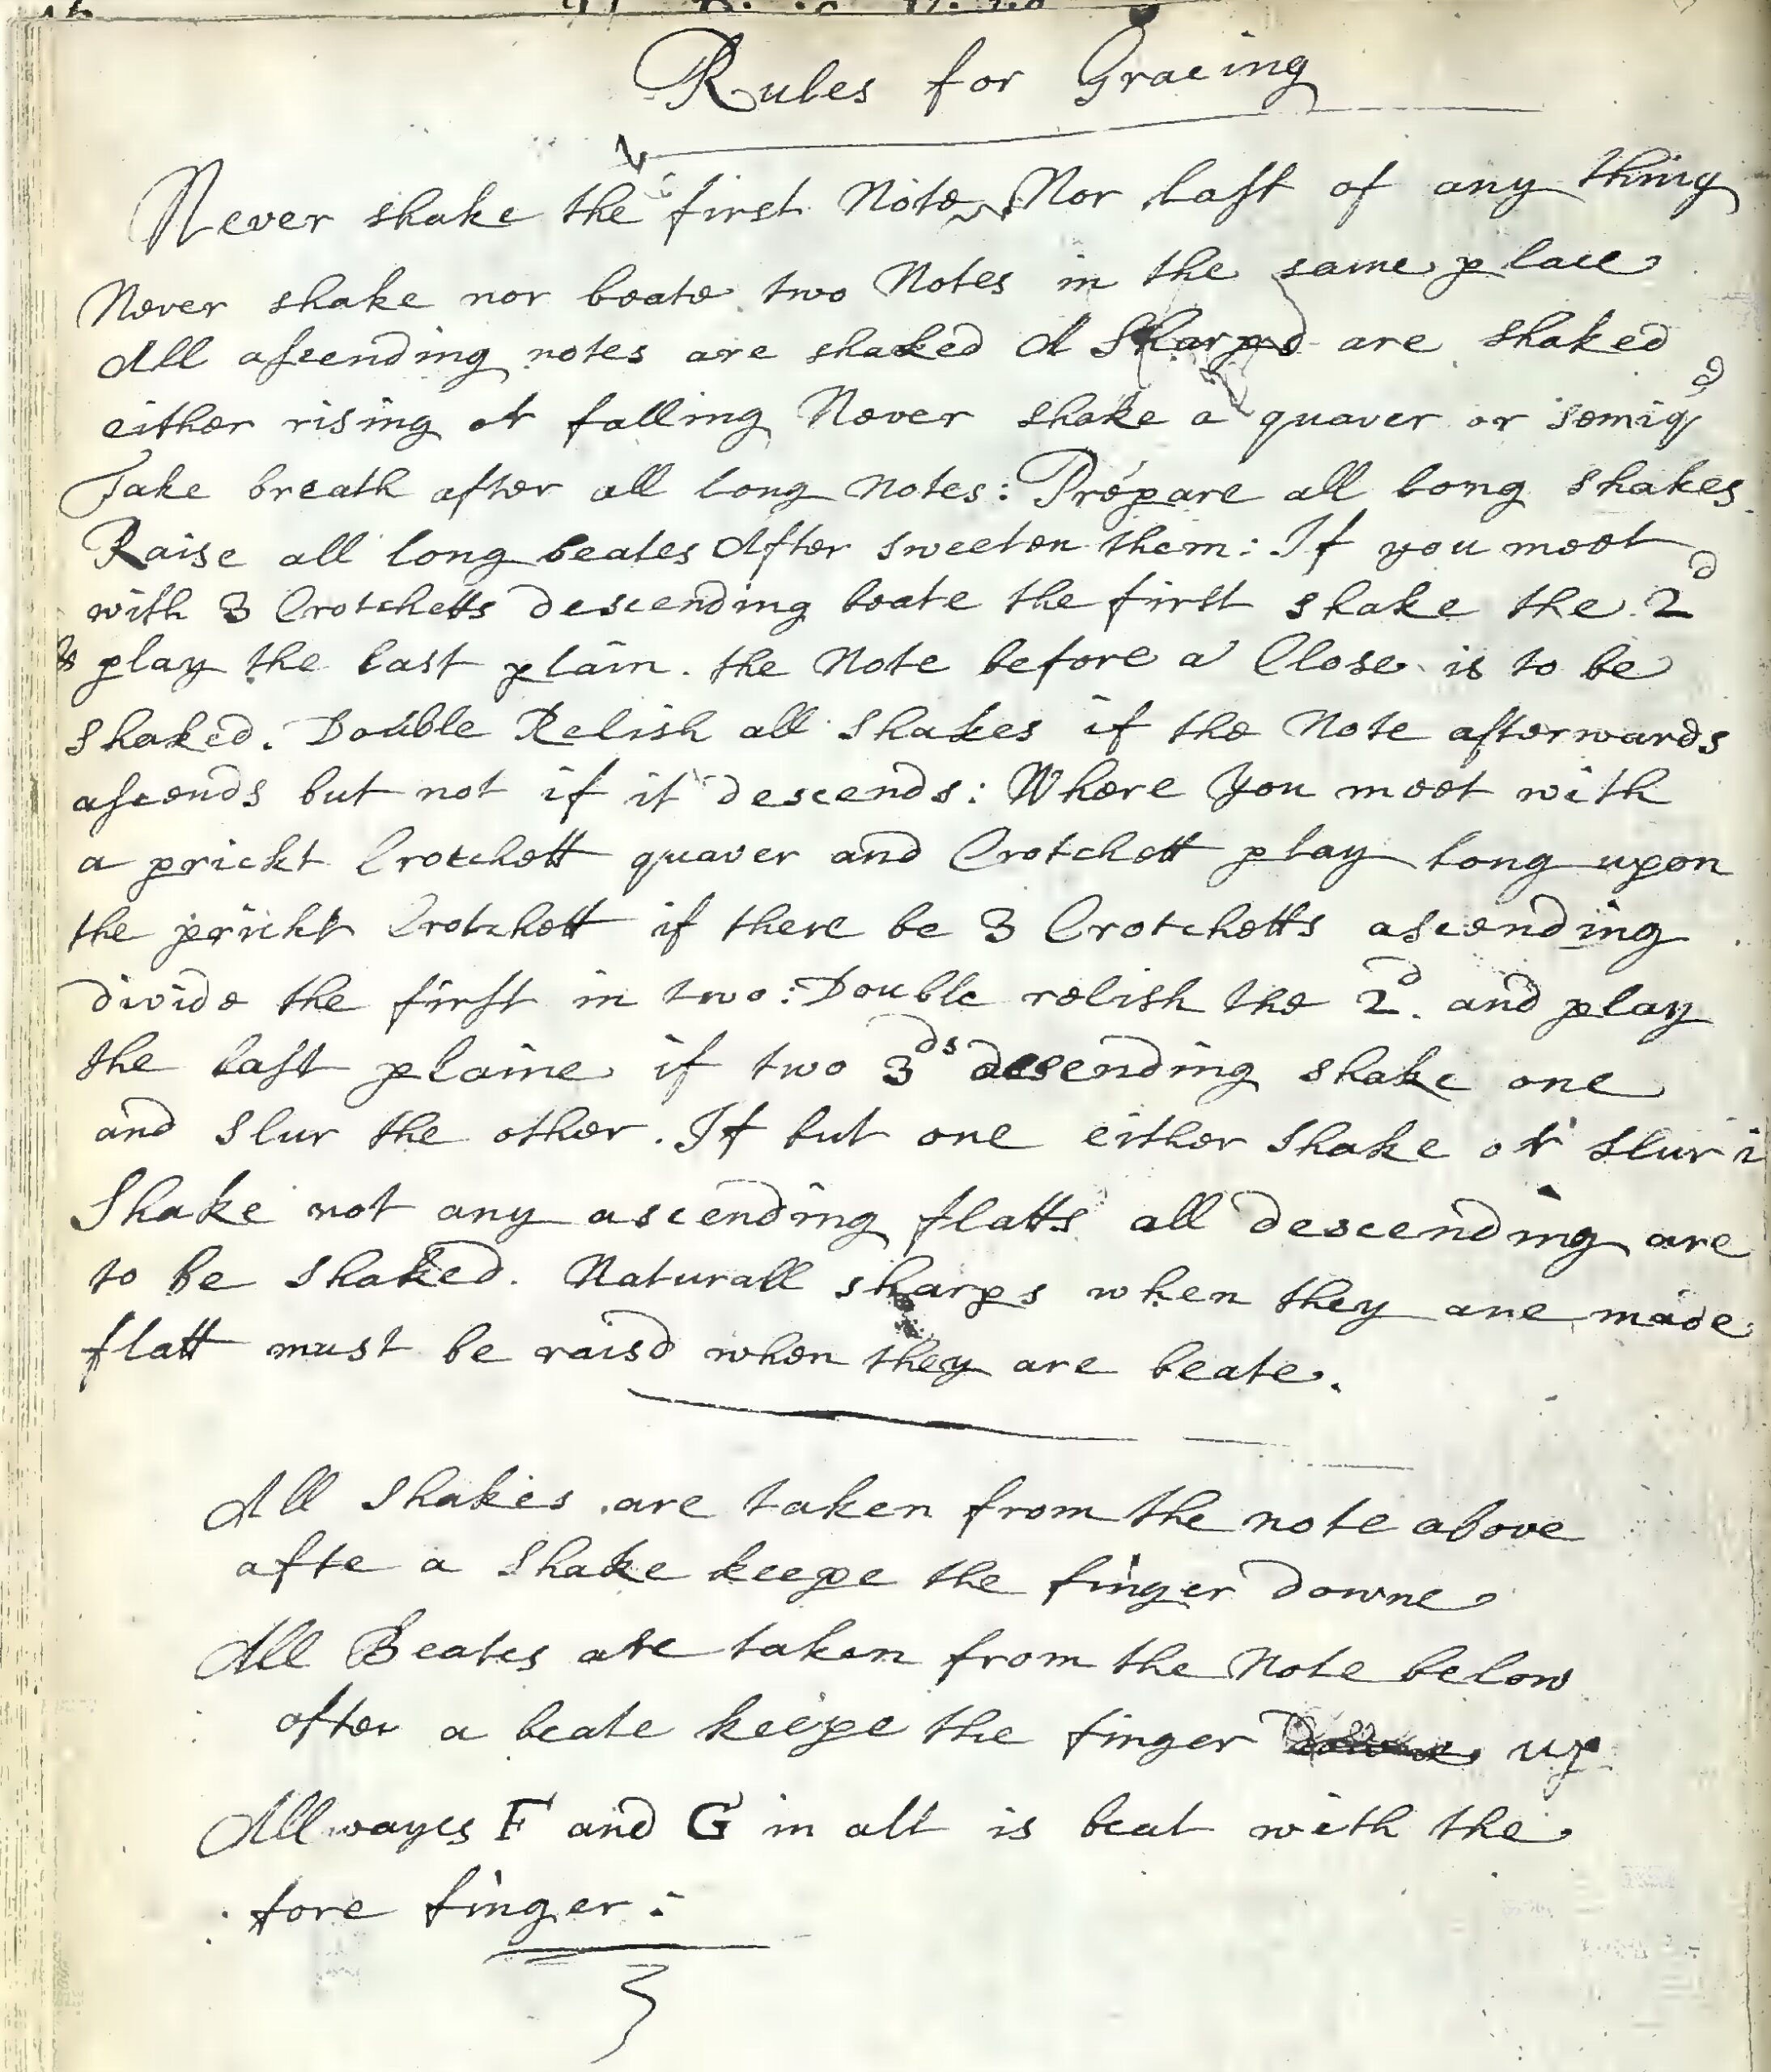 Rules for Gracing
Never shake the first Note Nor last of any thing
Never shake nor beate two Notes in the same place
All ascending notes are shaked All Sharps are shaked
either rising or falling Never shake a quaver or semiq
Take breath after all long Notes: Prepare all long shakes
Raise all long beates After sweeten them: If you meet
with 3 Crotchetts descending beate the first shake the 2d
& play the last plain. the Note before a Close is to be
shaked. Double Relish all shakes if the Note afterwards
ascends but not if it descends: Where you meet with
a prickt Crotchett quaver and Crotchett play long upon
the prickt Crotchett if there be 3 Crotchetts ascending
divide the first in two: Double relish the 2d. and play
the last plaine if two 3ds desending shake one
and slur the other. If but one either shake or slur i
Shake not any ascending flatts all descending are
to be shaked. Naturall sharps when they are made
flatt must be raisd when they are beate.
All Shakes are taken from the note above
afte a Shake keepe the finger downe
All Beates are taken from the Note below
after a beate keepe the finger up
Allwayes F and G in alt is beat with the
fore finger: